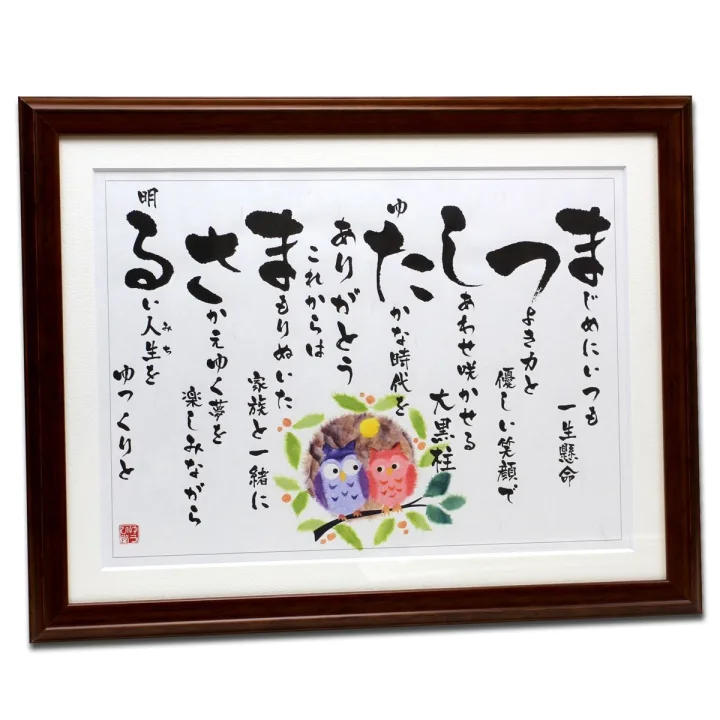 まじめにいつも
一生懸命
つよき力と
優しい笑顔で
しあわせ咲かせる
大黒柱
ゆたかな時代を
ありがとう
これからは
まもりぬいた
家族と一緒に
さかえゆく夢を
楽しみながら
明るい人生を
みち
ゆっくりと